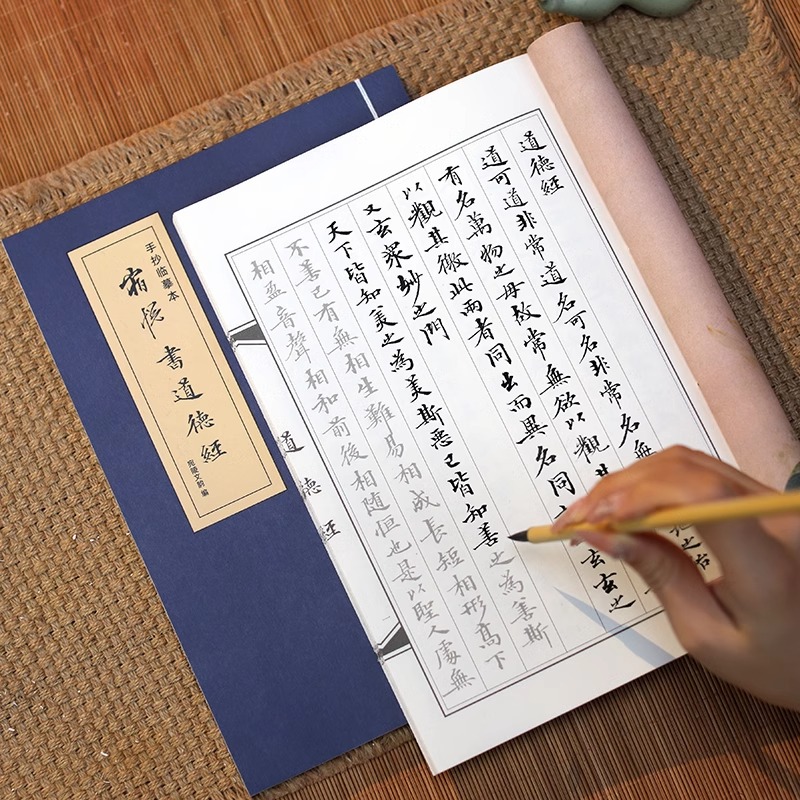 道德經
道可道非常道名可名非常名無地之始
有名萬物之母故常無欲以觀其
以觀其徼此兩者同出而異名同玄玄之
又玄衆妙之門
天下皆知美之為美斯惡已皆知善之為善斯
不善已有無相生難易相成長短相形高下
相盈音聲相和前後相隨恒也是以聖人處無
道德經
手抄临摹本
書道德經
编